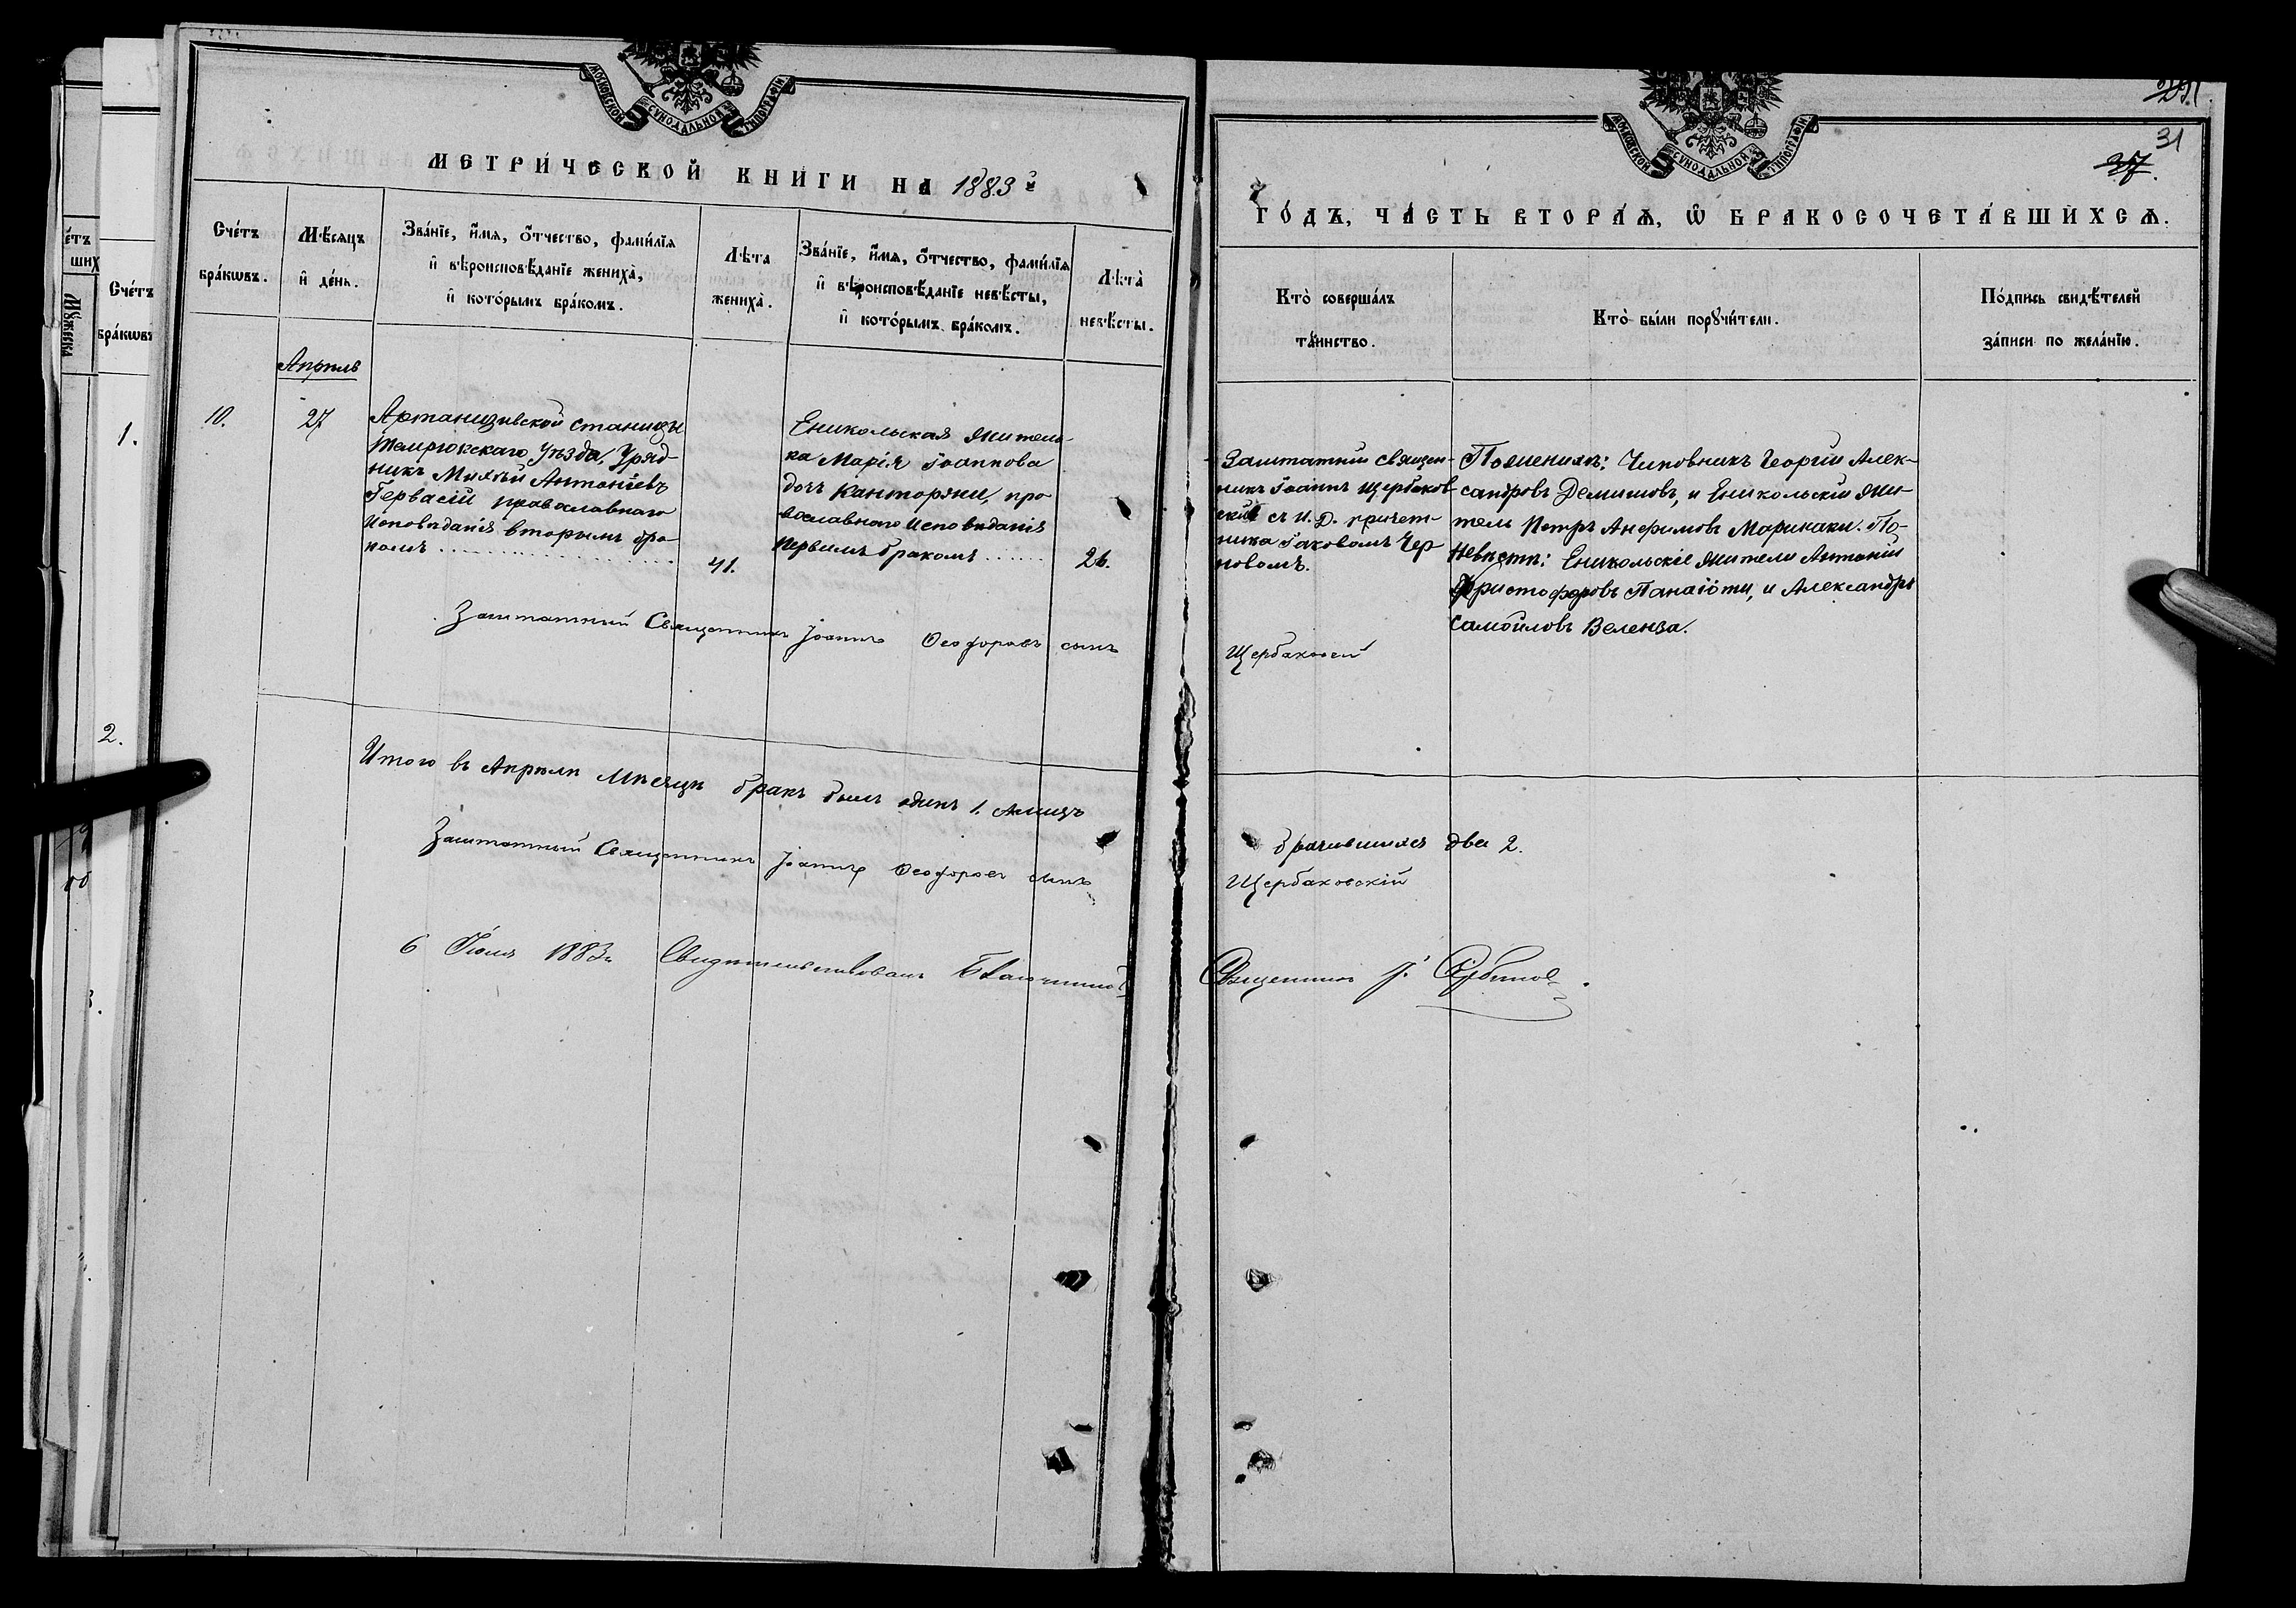 МОСКОВСКОЙ СѴНОДАЛЬНОЙ ТИПОГРАФІИ
МЕТРИ́ЧЕСКОЙ КНИ́ГИ НА 1883й
Сче́тъ бра́кѡвъ.
Мѣ́сяцъ и҆ де́нь.
Зва́нїе, и҆́мѧ, ѻ҆́тчество, фами́лїѧ
и҆ вѣроисповѣ́данїе жениха̀,
и҆ кото́рымъ бра́комъ.
Лѣ́та жениха̀.
Зва́нїе, и҆́мѧ, ѻ҆́тчество, фами́лїѧ
и҆ вѣроисповѣ́данїе невѣ́сты,
и҆ кото́рымъ бра́комъ.
Лѣта̀ невѣ́сты.
Апрѣль
10.
27
Ахтанизовской станицы
Темрюкскаго Уѣзда, Уряд-
никъ Михѣй Антоніевъ
Гервасій православнаго
Исповѣданія вторымъ бра-
комъ
41.
Еникольская житель-
ка Марія Іоаннова
дочь Канторяни, пра
вославнаго Исповѣданія
первымъ бракомъ
26.
Заштатный Священникъ Іоаннъ Ѳеодоровъ сынъ
Итого въ Апрѣлѣ Мѣсяцѣ бракъ былъ одинъ 1. А лицъ
Заштатный Священникъ Іоаннъ Ѳеодоровъ сынъ
6 Іюля 1883 г. Свидѣтельствовалъ Благочинный
МОСКОВСКОЙ СѴНОДАЛЬНОЙ ТИПОГРАФІИ
31
37.
ГО́ДЪ, ЧА́СТЬ ВТОРА́Ѧ, Ѡ҆ БРАКОСОЧЕТА́ВШИХСѦ.
Кто̀ соверша́лъ
та́инство.
Кто̀ бы́ли порꙋчи́тели.
По́дпись свидѣ́телей
за́писи по жела́нїю.
Заштатный священ-
никъ Іоаннъ Щербаков
скій съ И. Д. причет-
ника Іаковомъ Чер
новомъ.
По женихѣ: Чиновникъ Георгій Алек-
сандровъ Демишовъ, и Еникольскій жи-
тель Петръ Анфимовъ Маринаки. По-
невѣстѣ: Еникольскіе жители Антоній
Христофоровъ Панаіоти, и Александръ
Самойловъ Веленза.
Щербаковскій
брачившихся два 2.
Щербаковскій
Священникъ І.
Счétъ
бра́кѡвъ
1.
2.